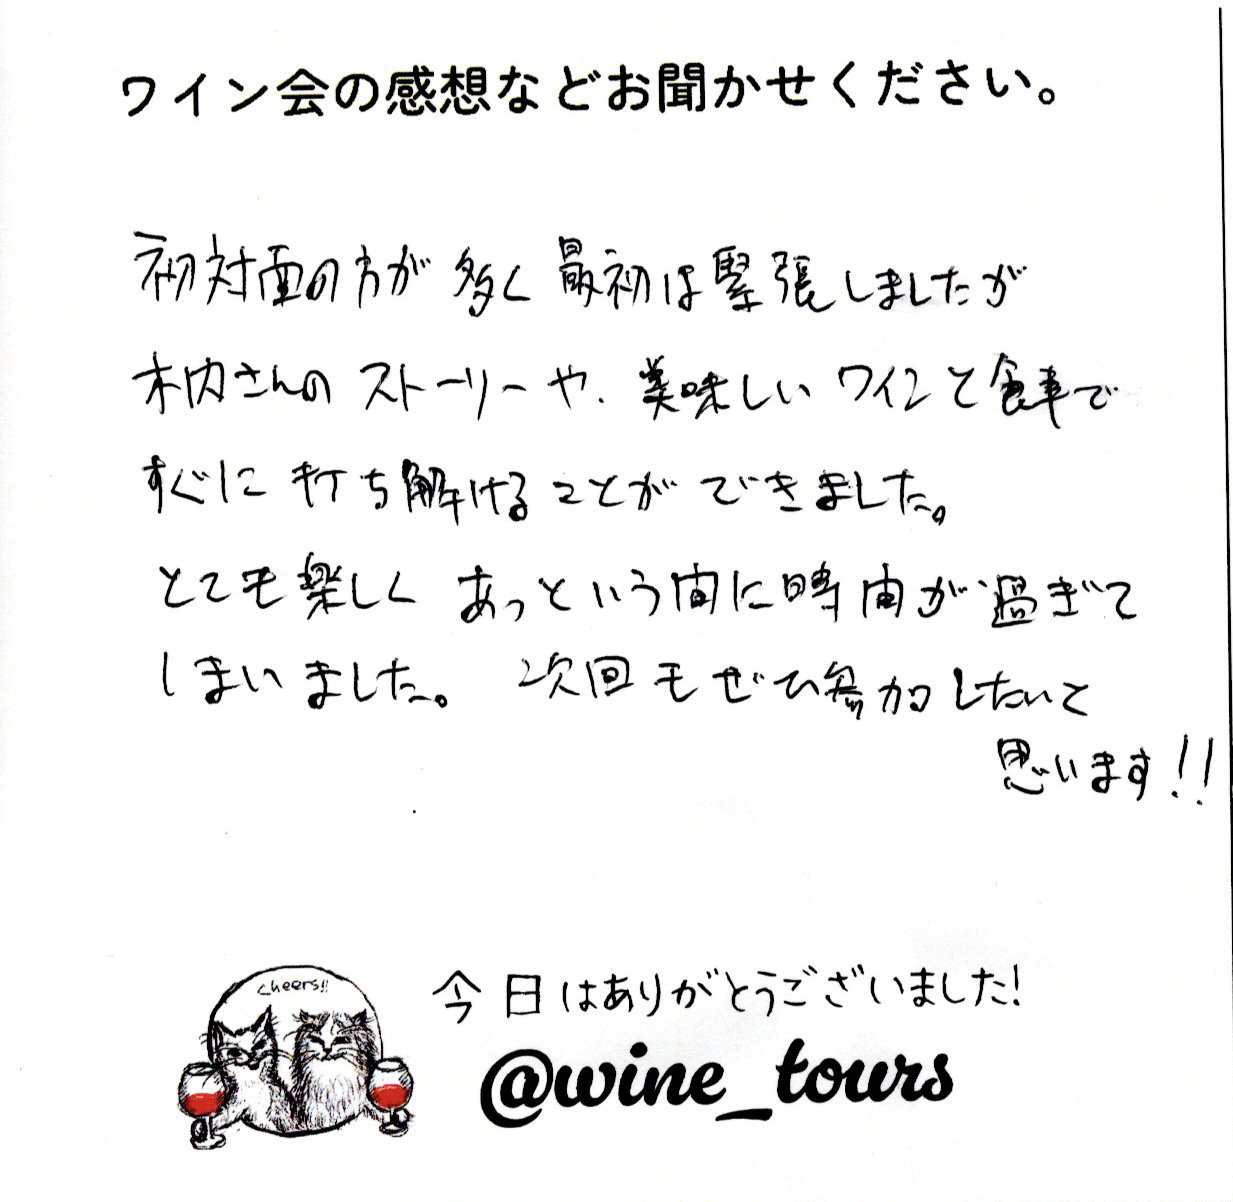 ワイン会の感想などお聞かせください。
初対面の方が多く最初は緊張しましたが
木内さんのストーリーや、美味しいワインと食事で
すぐに打ち解けることができました。
とても楽しくあっという間に時間が過ぎて
しまいました。次回もぜひ参加したいと
思います!!
cheers!!
今日はありがとうございました!
@wine_tours